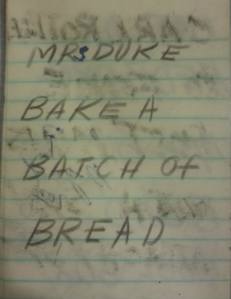 MRS DUKE
BAKE A
BATCH Of
BREAD